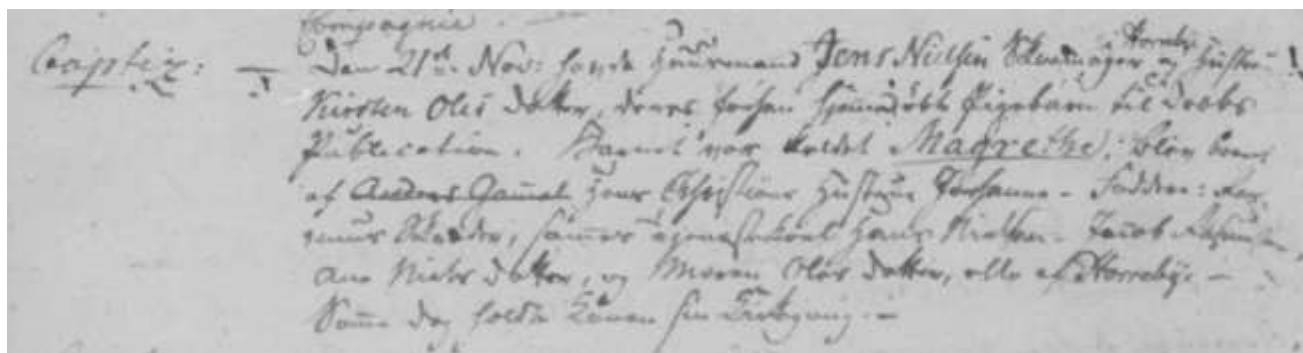 Compagnie.
Baptiz: Den 21de Nov: havde Huusmand Jens Nielsen i Horreby og Hustru
Kirsten Oles Datter, deres forhen hjemmedøbt Pigebarn til Daabs
Publication. Barnet var kaldet Magrethe, blev baaren
af Anders Gammel Hans Christians Hustrue Johanne - Faddere: Ras
mus, Hans Nielsen. Jacob
Ane Niels Datter, og Maren Oles Datter, alle af Horreby. -
Samme Dag holdte Konen sin Kirkegang. -